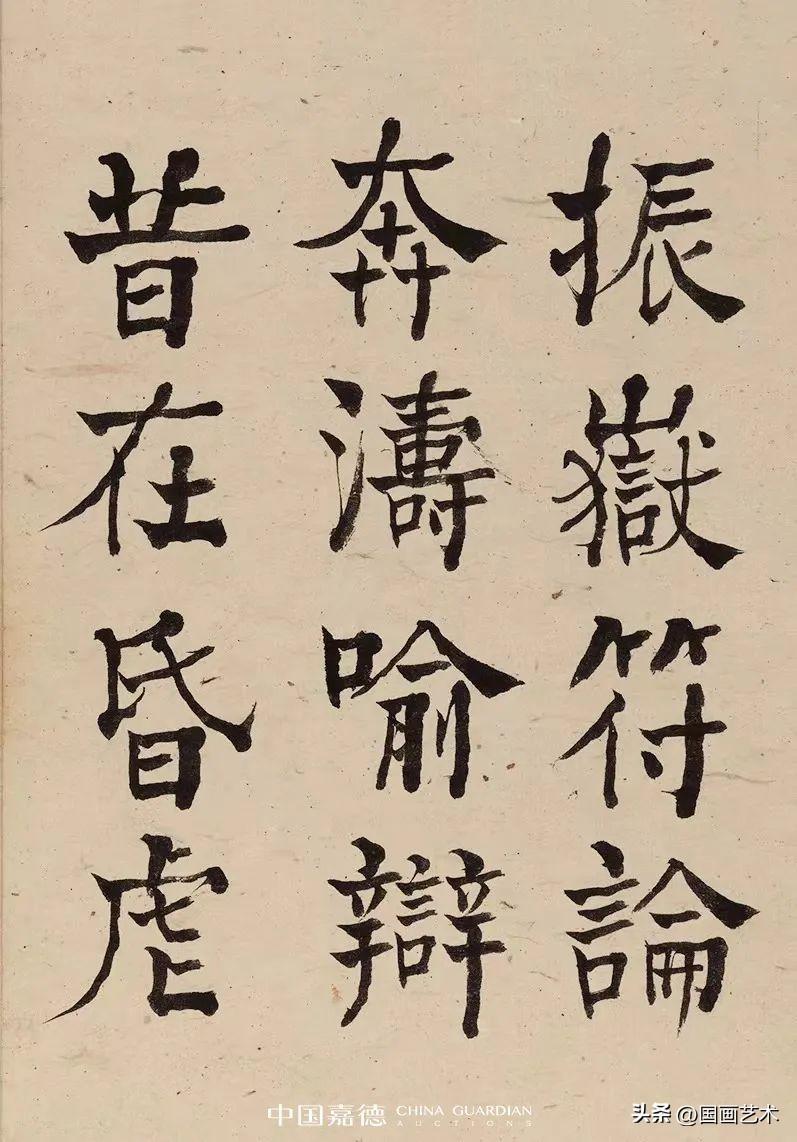 振嶽符論
奔濤喻辯
昔在昏虐
中国嘉德 CHINA GUARDIAN
AUCTIONS
头条 @国画艺术